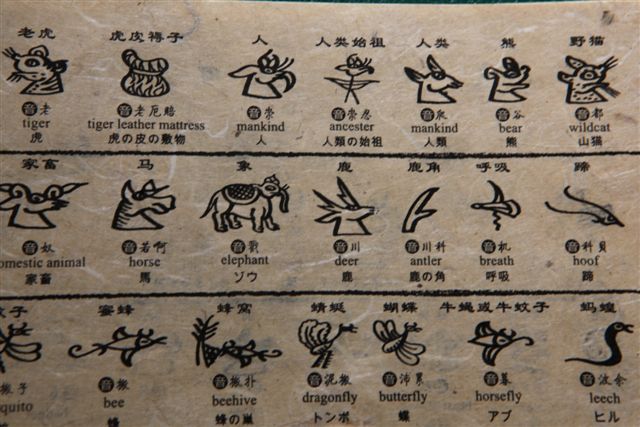 老虎 虎皮褥子 人 人类始祖 人类 熊 野猫
音老 音老厄赔 音崇 音崇忍 音 音谷 音都
tiger tiger leather mattress mankind ancester mankind bear wildcat
虎 虎の皮の敷物 人 人類の始祖 人類 熊 山猫
家畜 马 象 鹿 鹿角 呼吸 蹄
音奴 音若啊 音戳 音川 音川科 音机 音科贝
omestic animal horse elephant deer antler breath hoof
家畜 馬 ゾウ 鹿 鹿の角 呼吸 蹄
子 蜜蜂 蜂窝 蜻蜓 蝴蝶 牛蝇或牛蚊子 蚂蝗
子 音 音 音泥 音沛累 音暮 音波余
quito bee beehive dragonfly butterfly horsefly leech
蜂 蜂の巣 トンボ 蝶 アブ ヒル